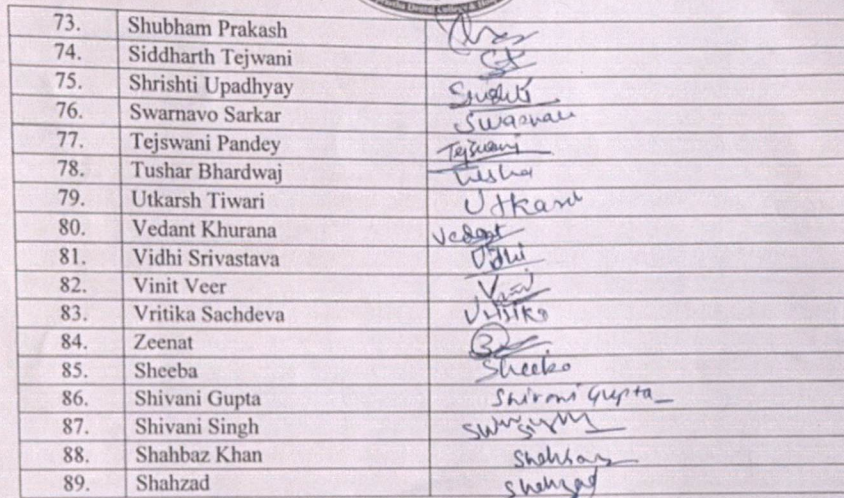 Dental College & Hos
73. Shubham Prakash
74. Siddharth Tejwani
75. Shrishti Upadhyay Srishti
76. Swarnavo Sarkar Swarnav
77. Tejswani Pandey Tejswani
78. Tushar Bhardwaj
79. Utkarsh Tiwari Utkarsh
80. Vedant Khurana Vedant
81. Vidhi Srivastava Vidhi
82. Vinit Veer
83. Vritika Sachdeva Vritika
84. Zeenat
85. Sheeba Sheeba
86. Shivani Gupta Shivani Gupta
87. Shivani Singh
88. Shahbaz Khan Shahbaz
89. Shahzad Shahzad